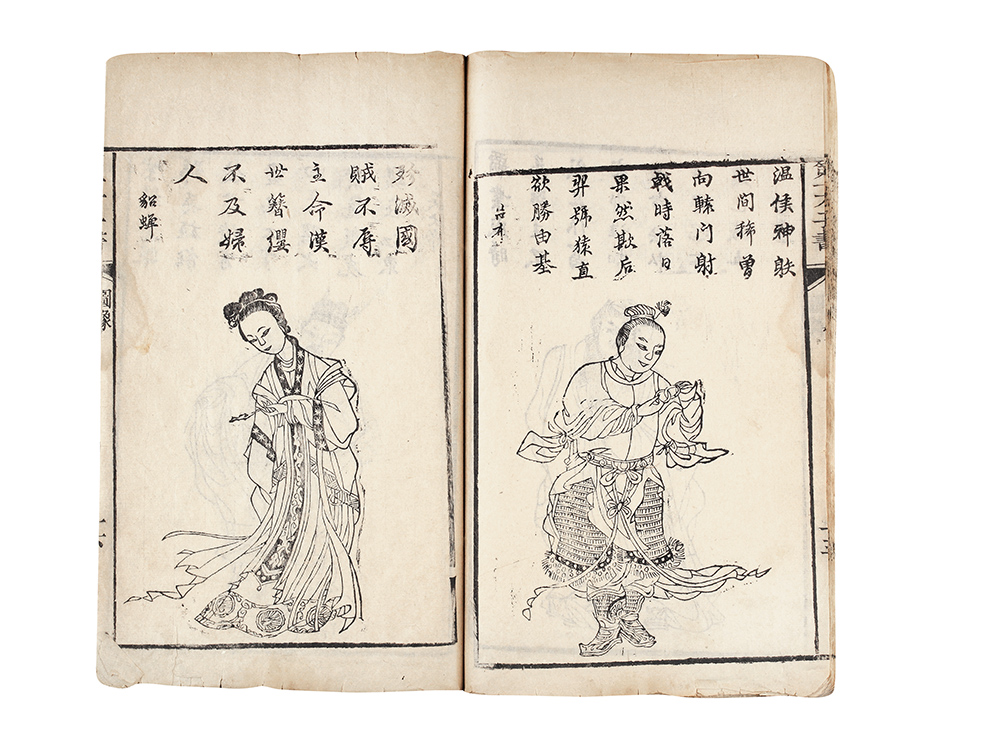 第一才子書
温侯神䠶
世間稀曾
向轅門射
戟時落日
果然欺后
羿號猿直
欲勝由基
呂布
殄滅國
賊不辱
主命漢
世簪纓
不及婦
人
貂蟬
圖像